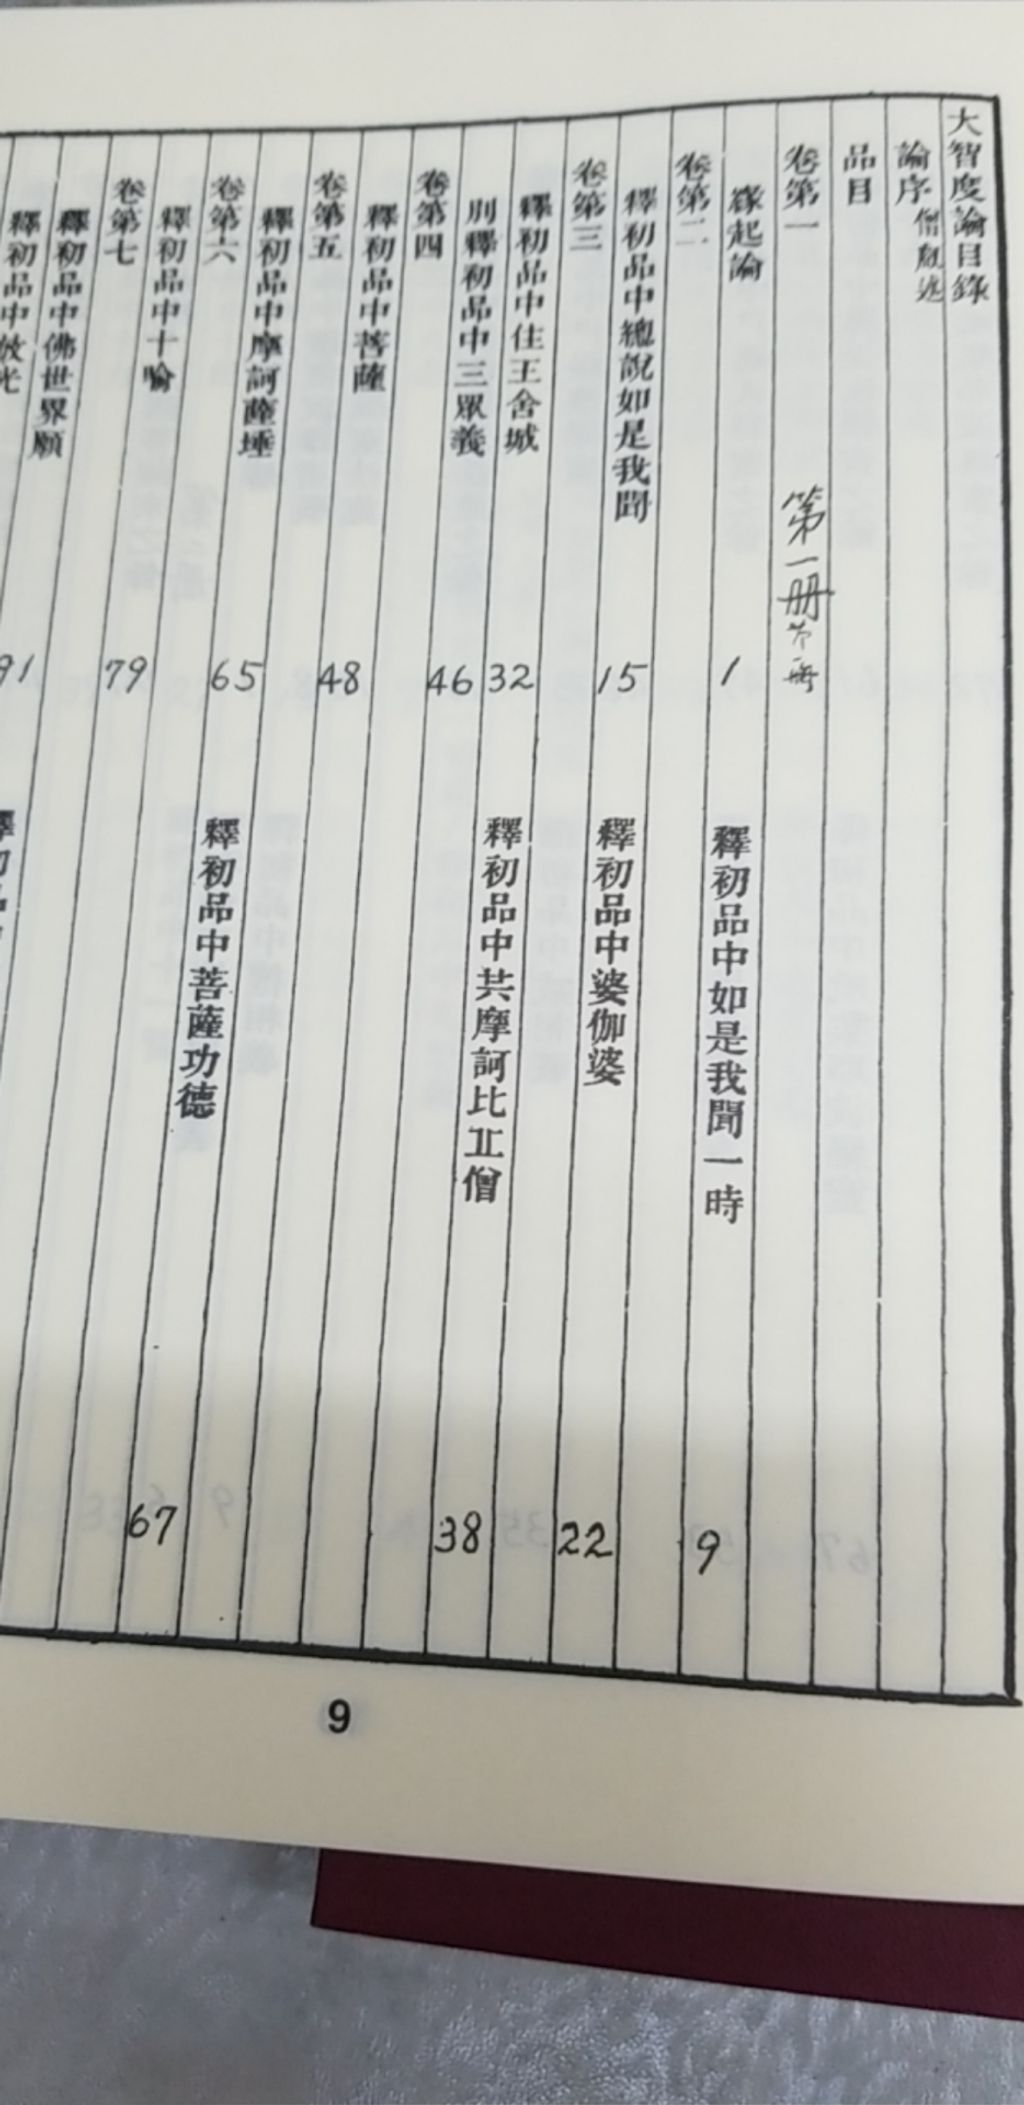 大智度論目錄
論序 僧叡述
品目
卷第一 第一册 第一册
緣起論 1 釋初品中如是我聞一時 9
卷第二
釋初品中總說如是我聞 15 釋初品中婆伽婆 22
卷第三
釋初品中住王舍城 32 釋初品中共摩訶比丘僧 38
別釋初品中三眾義 46
卷第四
釋初品中菩薩 48
卷第五
釋初品中摩訶薩埵 65
卷第六
釋初品中十喻 79 釋初品中菩薩功德 67
卷第七
釋初品中佛世界願 91
釋初品中放光
9